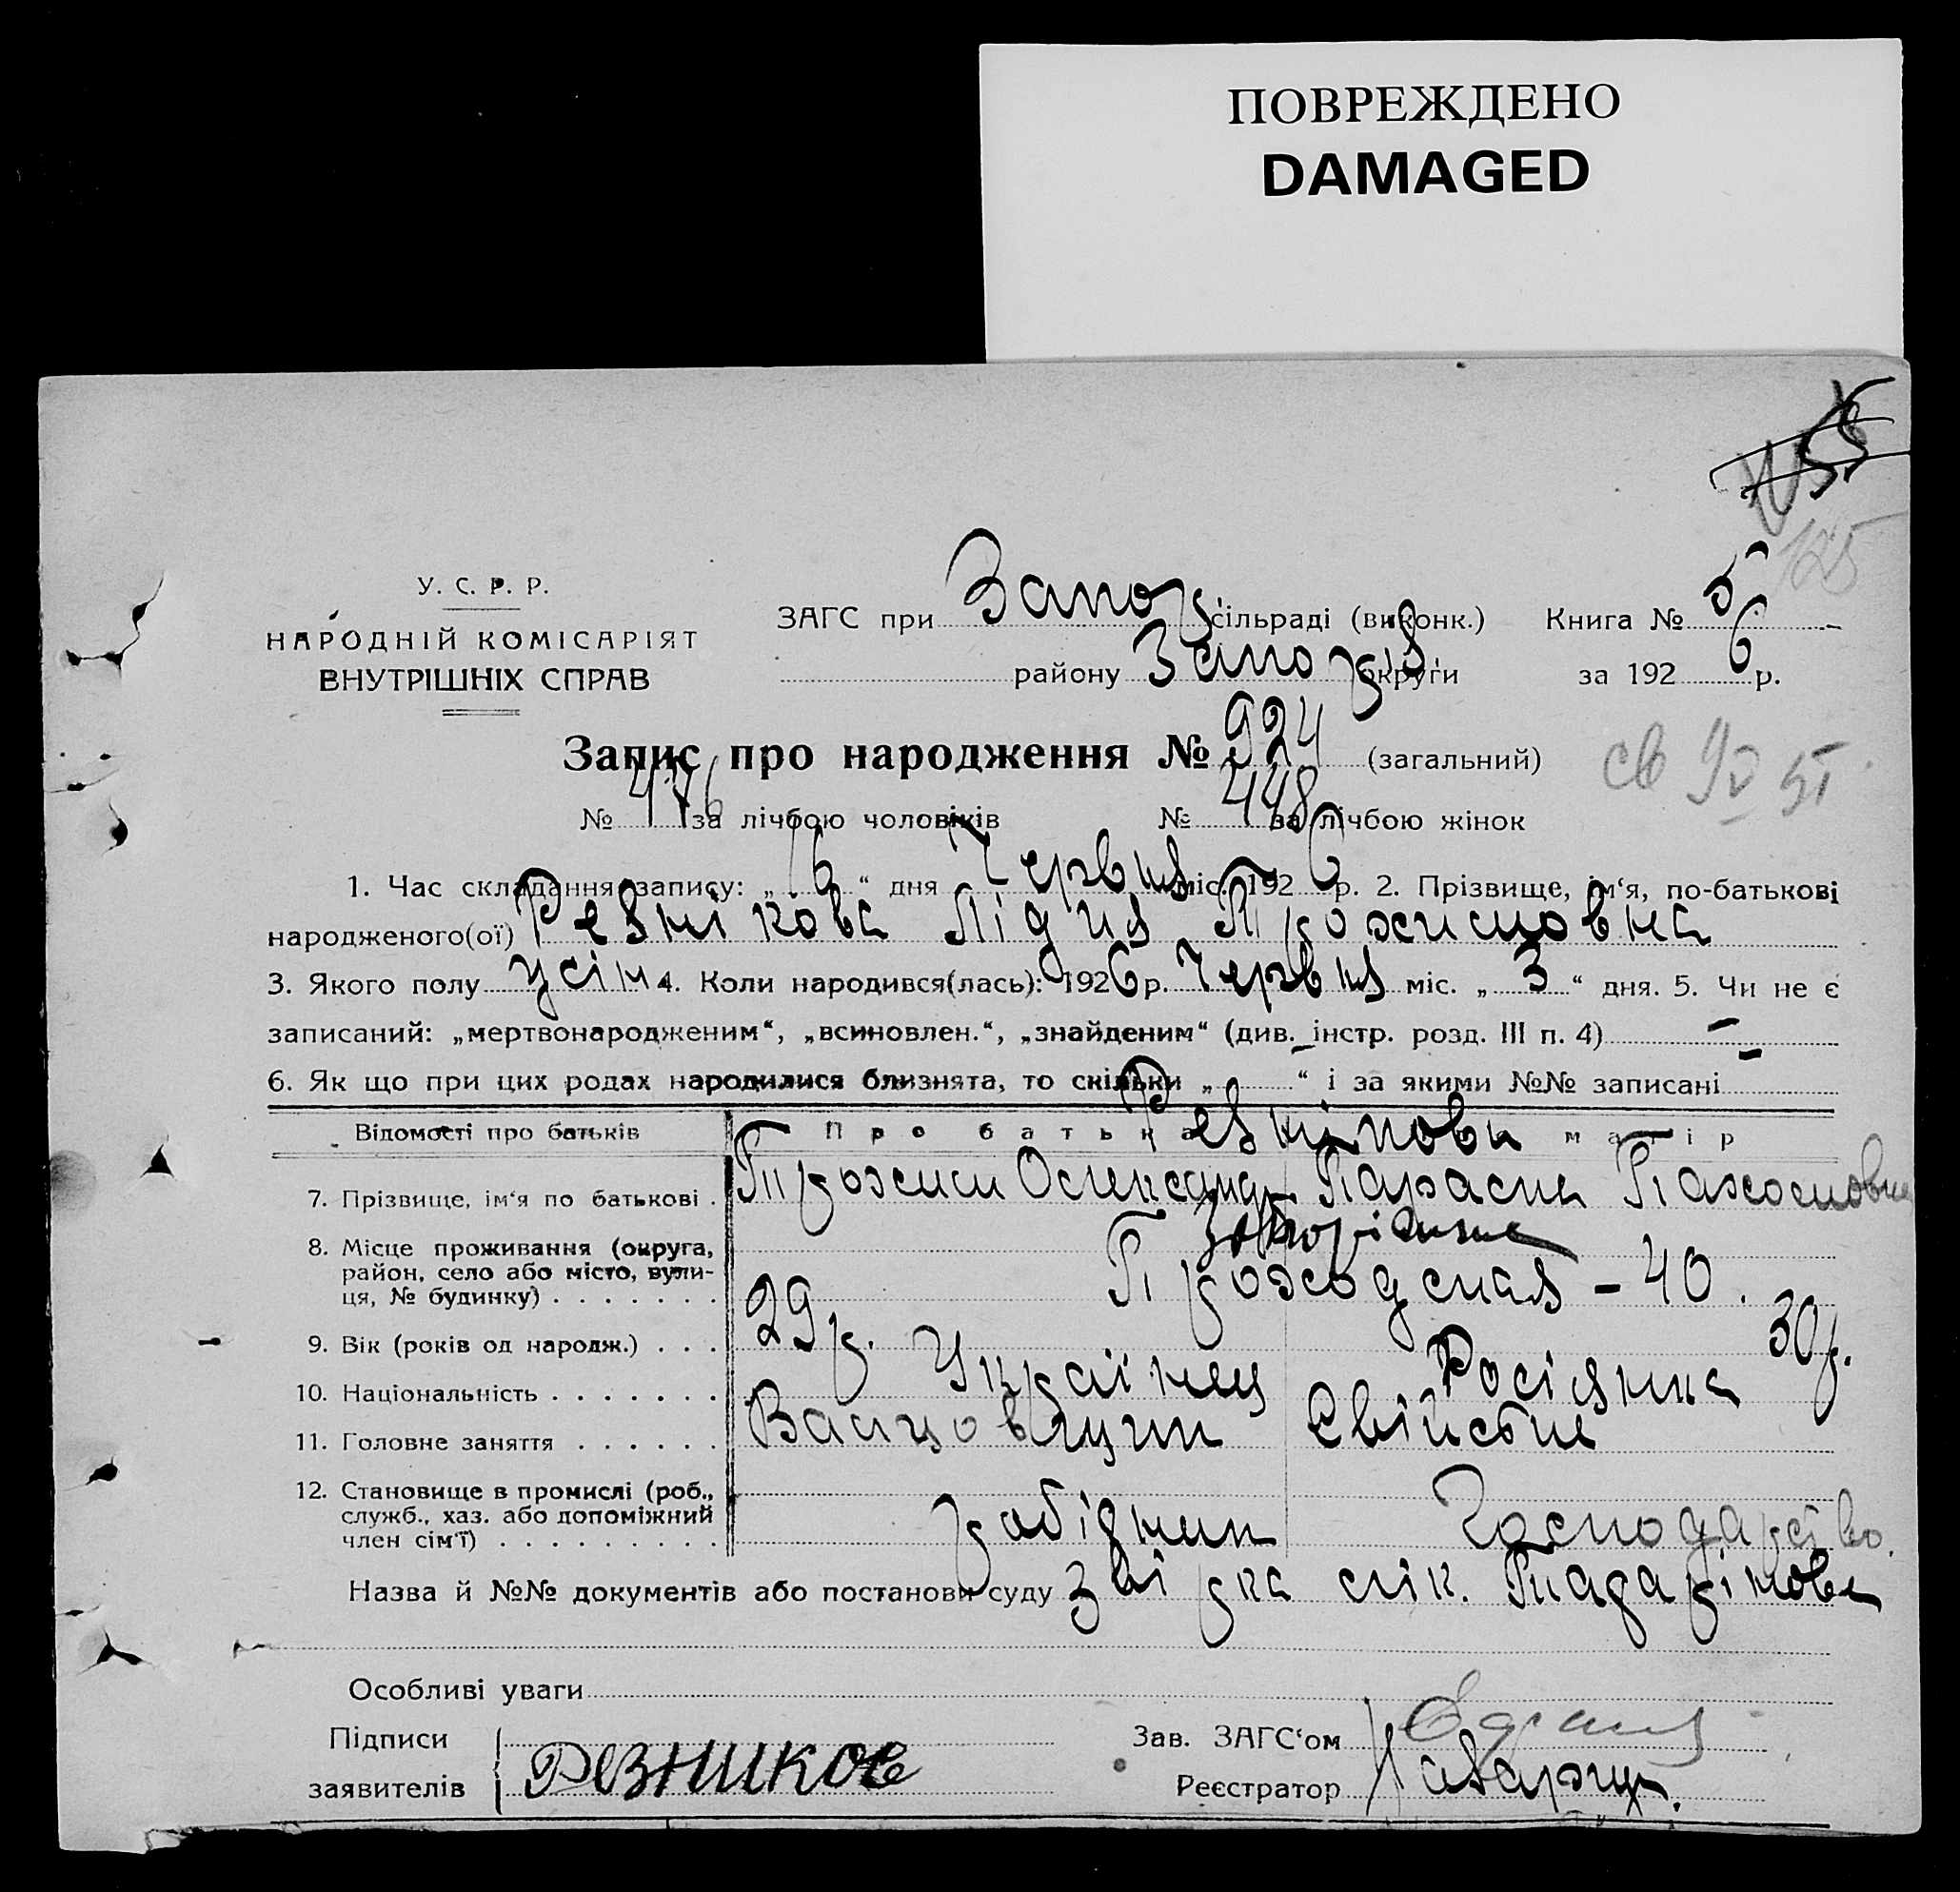 ПОВРЕЖДЕНО
DAMAGED
У. С. Р. Р.
НАРОДНІЙ КОМІСАРІЯТ
ВНУТРІШНІХ СПРАВ
ЗАГС при Запор. сільраді (виконк.) Книга № 5
району Запоріз. округи за 1926 р.
Запис про народження № 924 (загальний)
№ 476 за лічбою чоловіків № 448 за лічбою жінок
св
1. Час складання запису: „16“ дня Червня міс. 1926 р. 2. Прізвище, ім‘я, по-батькові
народженого(ої) Резнікова Лідия Трохимовна
3. Якого полу 4. Коли народився(лась): 1926 р. Червня міс. „3“ дня. 5. Чи не є
записаний: „мертвонародженим“, „всиновлен.“, „знайденим“ (див. інстр. розд. III п. 4) –
6. Як що при цих родах народилися близнята, то скільки „ “ і за якими №№ записані –
Відомості про батьків Про батька матір
Резнікови
7. Прізвище, ім‘я по батькові . Трохим Олександр. Параска Пахомовна
8. Місце проживання (округа, район, село або місто, вулиця, № будинку) . . . . . . . Запоріжже
– 40.
9. Вік (років од народж.) . . . 29 р. 30 р.
10. Національність . . . . . . . Українец Росіянка
11. Головне заняття . . . . . . Вальцовщик Свійстне
12. Становище в промислі (роб., служб., хаз. або допоміжний член сім‘ї) . . . . . . . . . робідник Господарство.
Назва й №№ документів або постанови суду лік.
Особливі уваги
Підписи
заявителів Резников
Зав. ЗАГС‘ом
Реєстратор